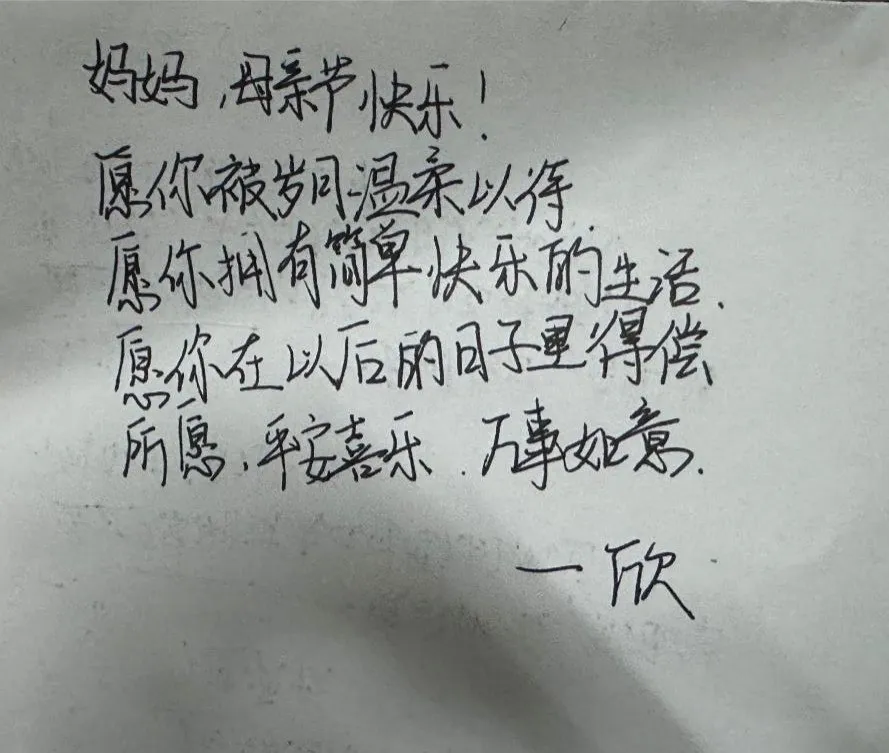 妈妈,母亲节快乐!
愿你被岁月温柔以待
愿你拥有简单快乐的生活.
愿你在以后的日子里得偿
所愿.平安喜乐.万事如意.
一欣